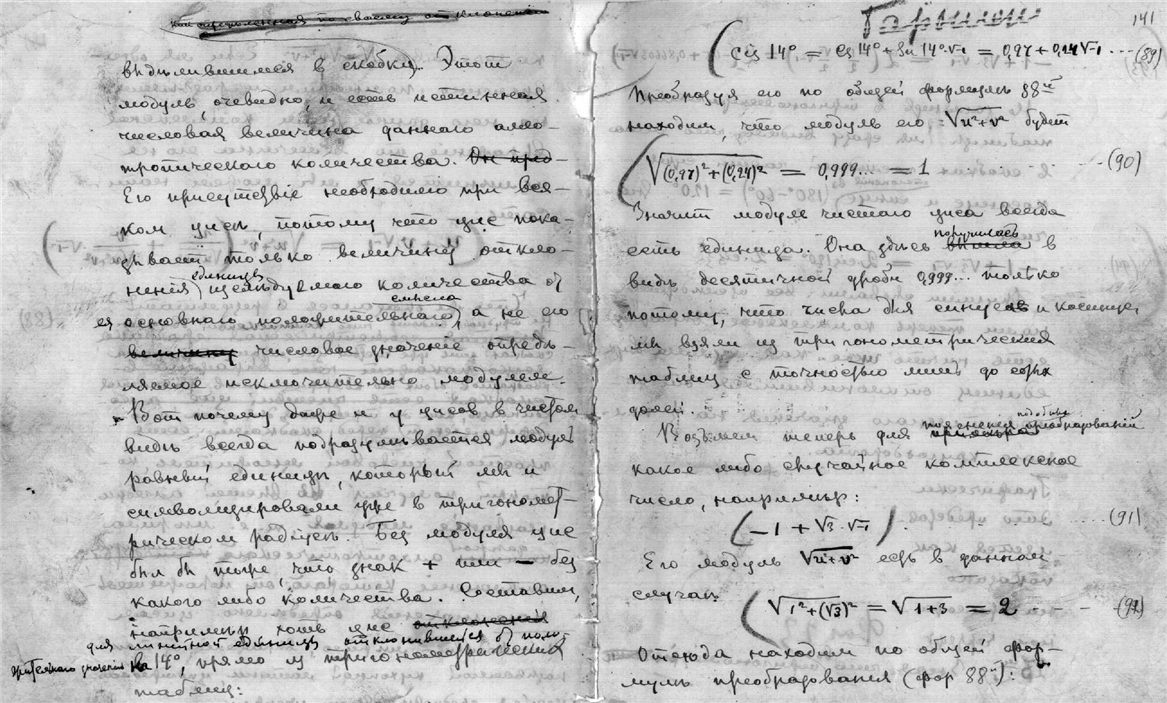 вѣдѣлившимся в скобки). Этот
модуль, очевидно, и есть истинная
числовая величина даннаго алло-
тропическаго количества.
Его присутствіе необходимо при вся-
ком цисѣ, потому что цис пока-
зывает только величину откло-
ненія единицъ количества от
ея основнаго положительнаго, а не его
числовое значеніе опредѣ-
ляемое исключительно модулем.
Вот почему даже и у цисов в чистом
видѣ всегда подразумѣвается модуль
равный единицѣ, который мы и
символизировали уже в тригономет-
рическом радіусѣ. Без модуля цис
был бы тоже что знак + или — без
какого либо количества. Составим,
напримѣр хоть цис
для линейной единицы отклонившейся от поло-
жительнаго значенія на 14°, прямо из тригонометрических
таблиц:
141
(cis 14° = cs 14° + sn 14°·√-1 = 0,97 + 0,24√-1 ... (89)
Преобразуя его по общей формулѣ 88ой
находим, что модуль его: √u²+v² будет
√(0,97)²+(0,24)² = 0,999... = 1 (90)
Значит модуль чистаго циса всегда
есть единица. Она здѣсь получилась в
видѣ десятичной дроби 0,999... только
потому, что числа для синусов и косинусов
мы взяли из тригонометрических
таблиц с точностью лишь до сотых
долей.
Возьмем теперь для поясненія подобных преобразований
какое либо случайное комплексное
число, напримѣр:
(-1 + √3·√-1) (91)
Его модуль √u²+v² есть в данном
случаѣ
(√1²+(√3)² = √1+3 = 2 - - - (92)
Отсюда находим по общей фор-
мулѣ преобразования (фор 88ой):